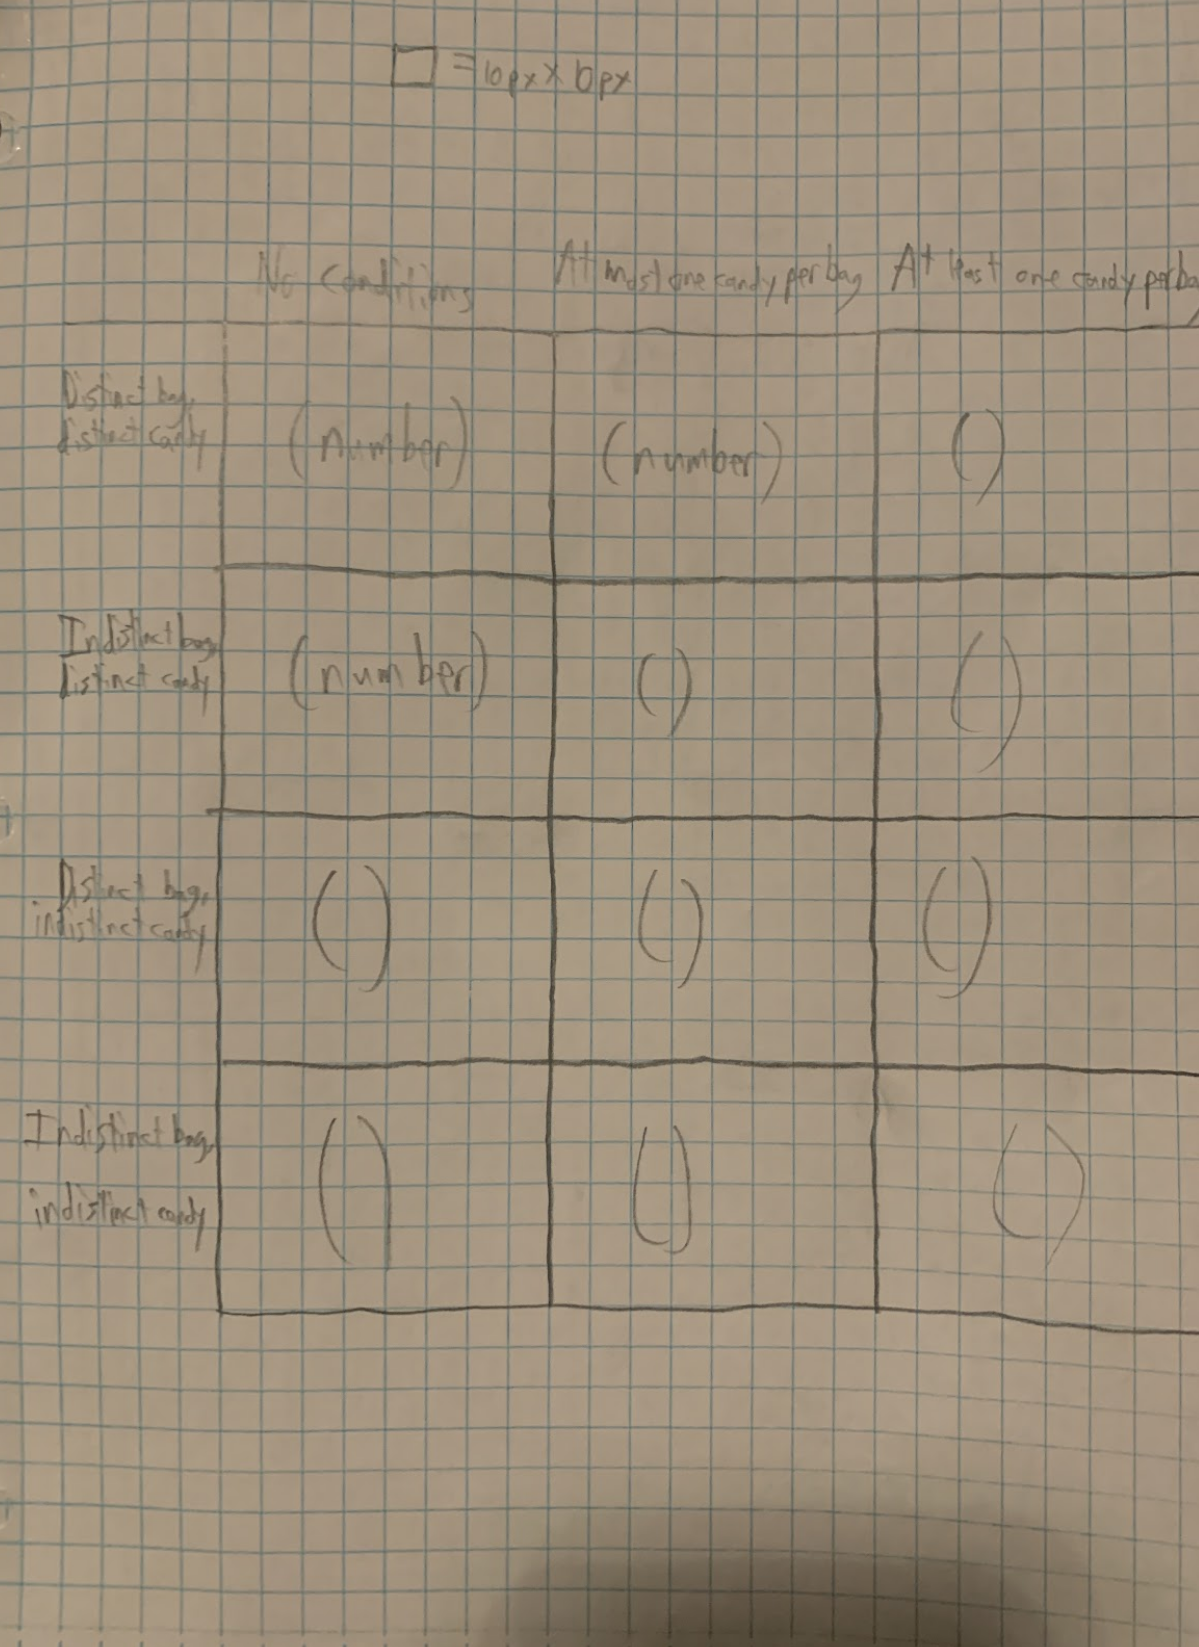 □ = 10px × 10px
No conditions At most one candy per bag At least one candy per ba
Distinct bag,
distinct candy
(number) (number) ()
Indistinct bag,
distinct candy
(number) () ()
Distinct bag,
indistinct candy
() () ()
Indistinct bag,
indistinct candy
() () ()